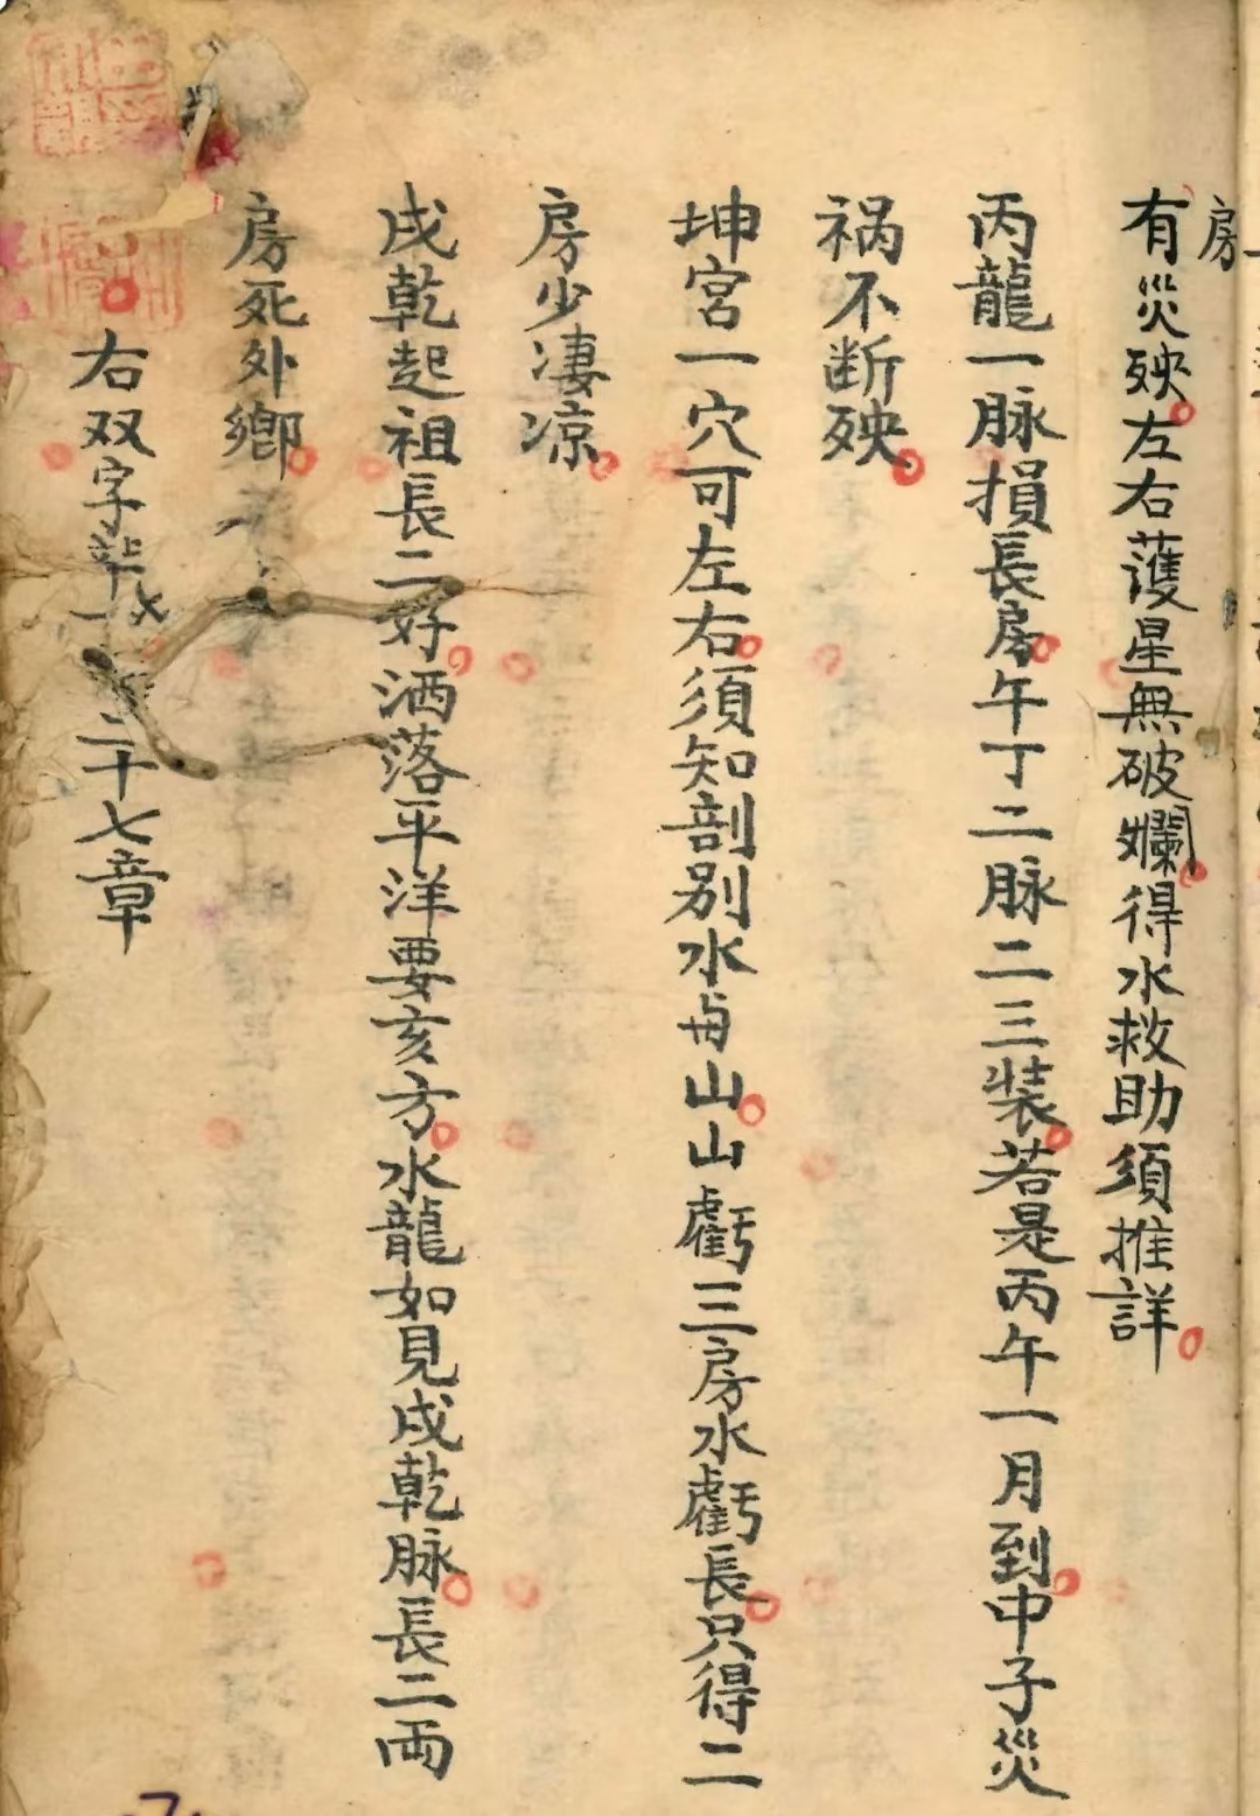 房
有災殃左右護星無破爛得水救助須推詳
丙龍一脉損長房午丁二脉二三装若是丙午一月到中子災
禍不断殃
坤宮一穴可左右須知剖别水与山山虧三房水虧長只得二
房少凄凉
戌乾起祖長二好洒落平洋要亥方水龍如見戌乾脉長二両
房死外鄉
右双字 二十七章